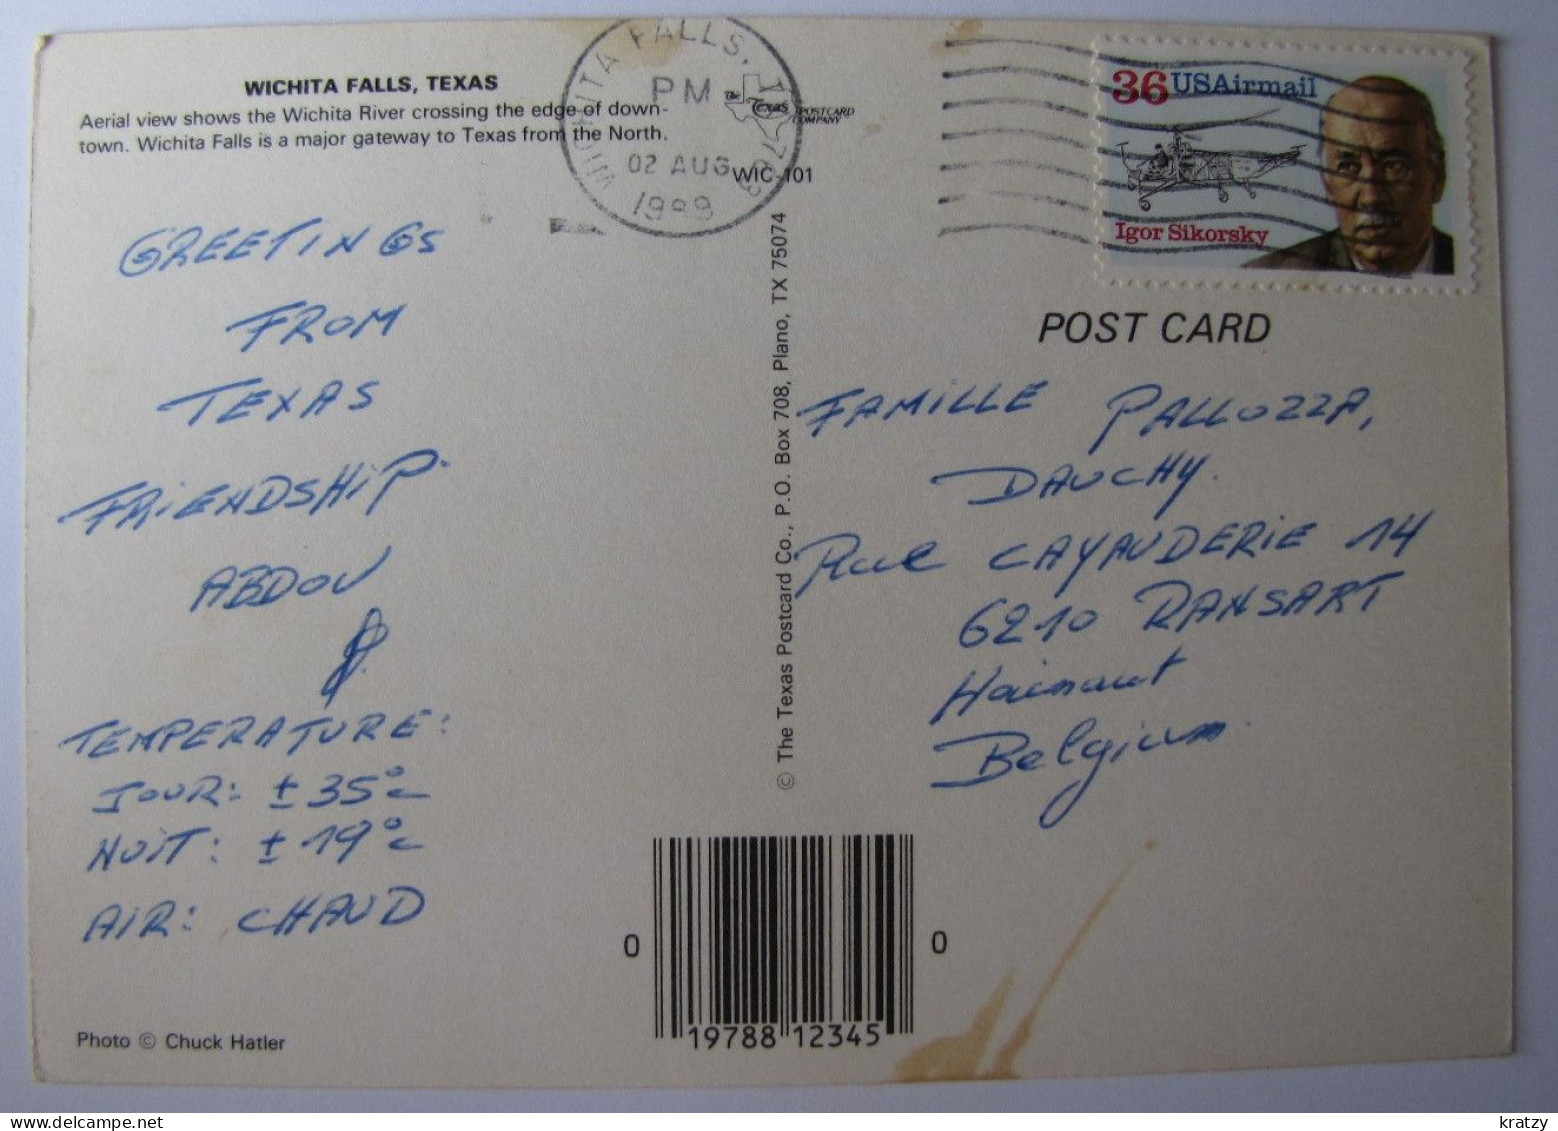 WICHITA FALLS, TEXAS
Aerial view shows the Wichita River crossing the edge of down-
town. Wichita Falls is a major gateway to Texas from the North.
WICHITA FALLS, TX 763
PM
02 AUG
1989
the Texas POSTCARD
COMPANY
WIC-101
36 USAirmail
Igor Sikorsky
GREETINGS
FROM
TEXAS
FRIENDSHIP
ABDOU
TEMPERATURE:
JOUR: ± 35°C
NUIT: ± 19°C
AIR: CHAUD
Photo © Chuck Hatler
© The Texas Postcard Co., P.O. Box 708, Plano, TX 75074
POST CARD
FAMILLE PALLOZZA,
DAUCHY.
Rue CAYAUDERIE 14
6210 RANSART
Hainaut
Belgium
0 19788 12345 0
kratzy